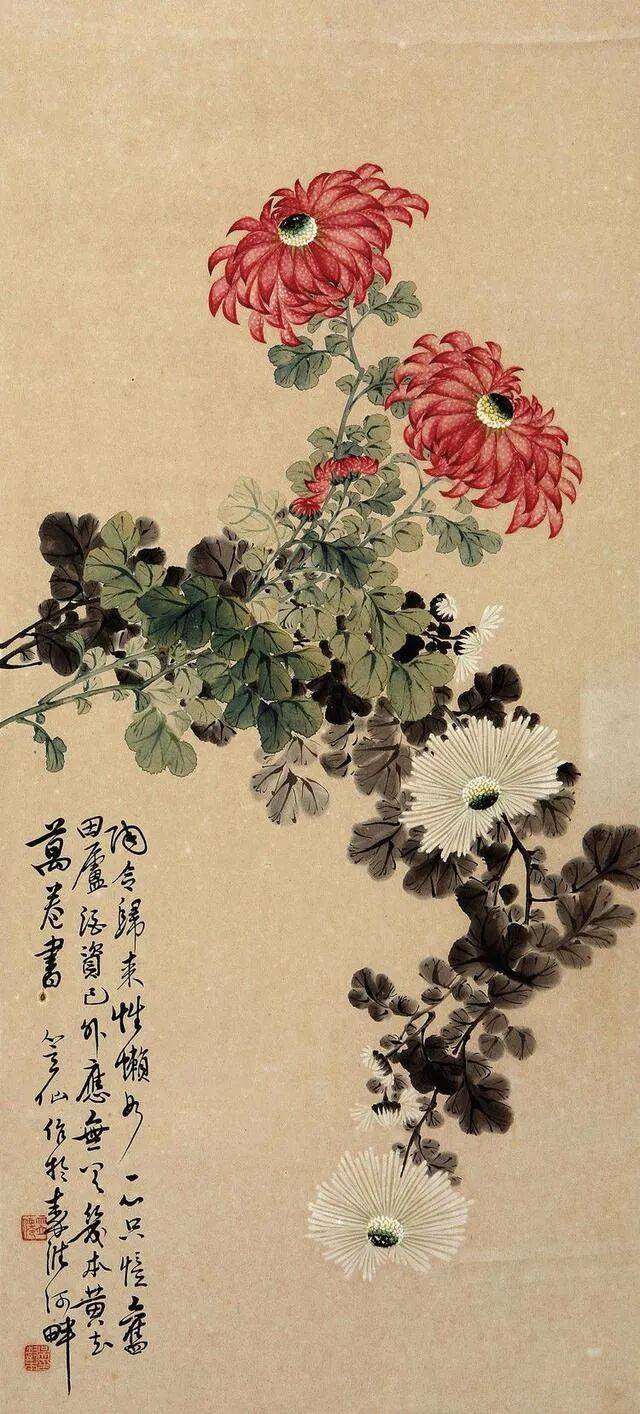 陶令歸來性懶一心只憶舊
田廬酒資已外應無幾本黃花
萬卷書 笠仙作於秦淮河畔